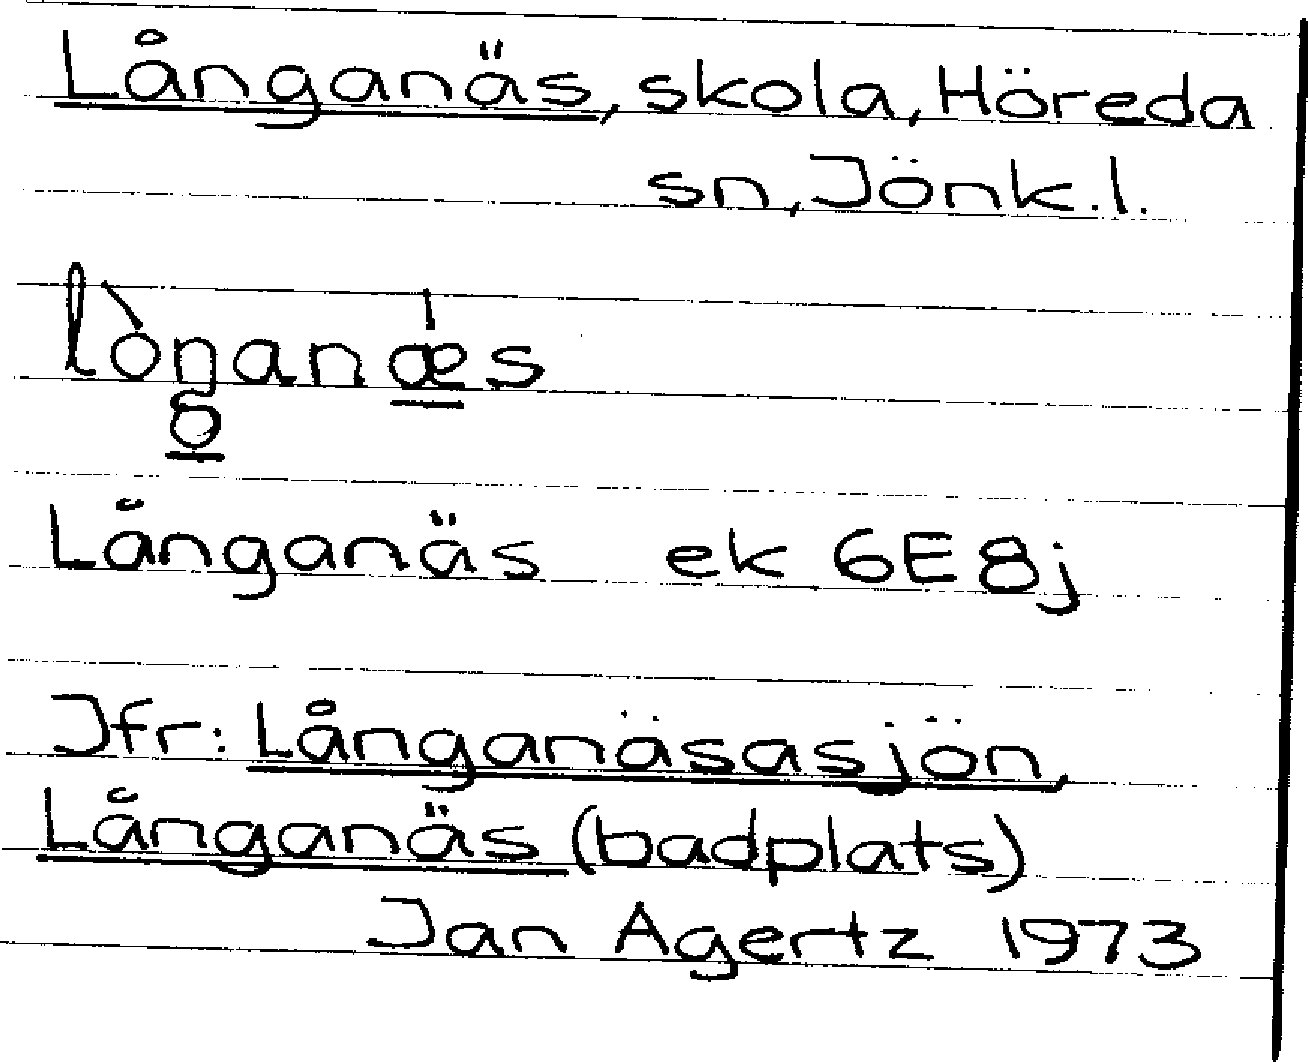 Långanäs, skola, Höreda
sn, Jönk.l.
lòŋganǽs
Långanäs ek 6E8j
Jfr: Långanäsasjön,
Långanäs (badplats)
Jan Agertz 1973